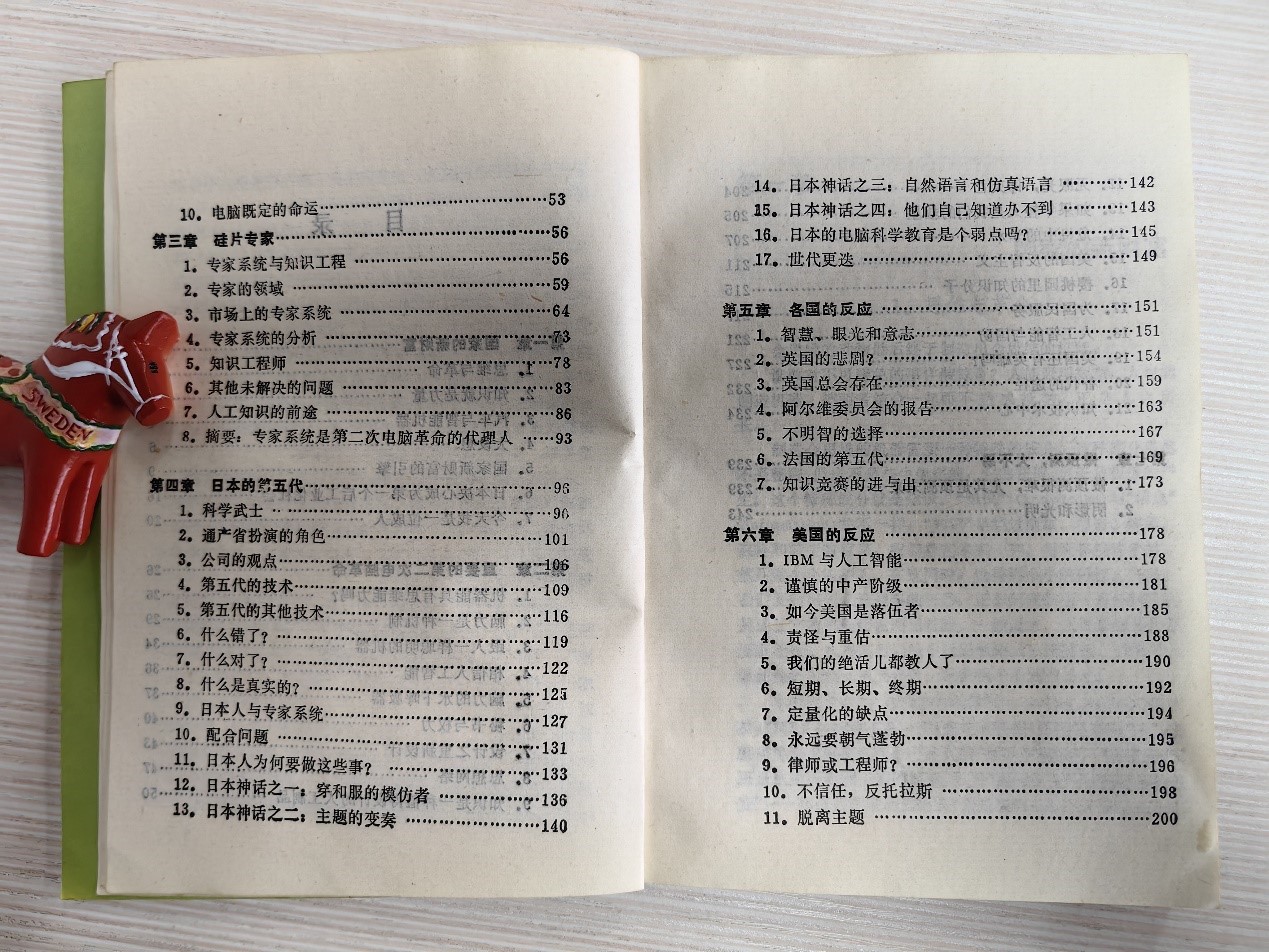 10。电脑既定的命运……53
第三章 硅片专家……56
1。专家系统与知识工程……56
2。专家的领域……59
3。市场上的专家系统……64
4。专家系统的分析……73
5。知识工程师……78
6。其他未解决的问题……83
7。人工知识的前途……86
8。摘要：专家系统是第二次电脑革命的代理人……93
第四章 日本的第五代……96
1。科学武士……96
2。通产省扮演的角色……101
3。公司的观点……106
4。第五代的技术……109
5。第五代的其他技术……116
6。什么错了？……119
7。什么对了？……122
8。什么是真实的？……125
9。日本人与专家系统……127
10。配合问题……131
11。日本人为何要做这些事？……133
12。日本神话之一：穿和服的模仿者……136
13。日本神话之二：主题的变奏……140
14。日本神话之三：自然语言和仿真语言……142
15。日本神话之四：他们自己知道办不到……143
16。日本的电脑科学教育是个弱点吗？……145
17。世代更迭……149
第五章 各国的反应……151
1。智慧、眼光和意志……151
2。英国的悲剧？……154
3。英国总会存在……159
4。阿尔维委员会的报告……163
5。不明智的选择……167
6。法国的第五代……169
7。知识竞赛的进与出……173
第六章 美国的反应……178
1。IBM 与人工智能……178
2。谨慎的中产阶级……181
3。如今美国是落伍者……185
4。责怪与重估……188
5。我们的绝活儿都教人了……190
6。短期、长期、终期……192
7。定量化的缺点……194
8。永远要朝气蓬勃……195
9。律师或工程师？……196
10。不信任，反托拉斯……198
11。脱离主题……200
SWEDEN